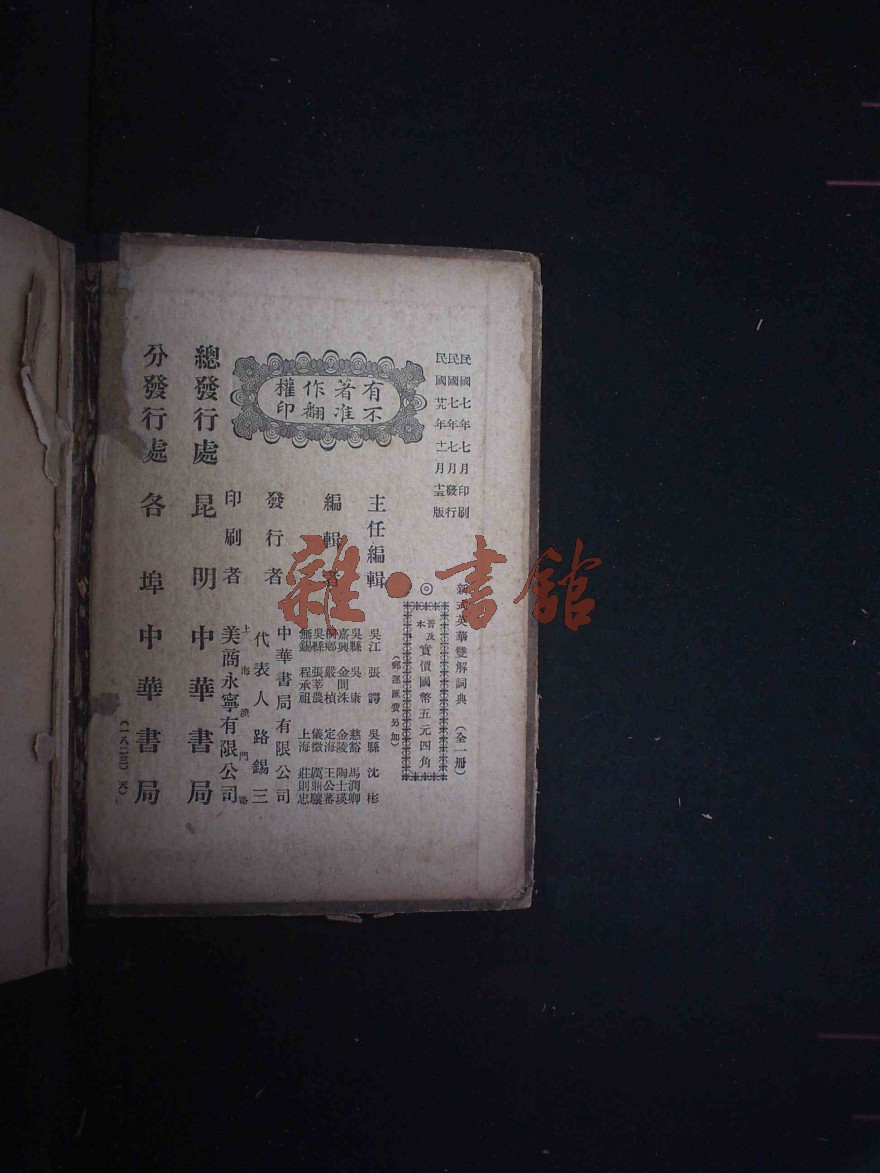 民國七年七月印刷
民國七年七月發行
民國廿九年十二月十五版
新式英華雙解詞典（全一冊）
◎普及本實價國幣五元四角
（郵運匯費另加）
有著作權
不准翻印
主任編輯 吳江 張諤 吳縣 沈彬
編輯者
吳縣 吳康 慈谿 馬潤卿
嘉興 金問洙 金陵 陶士瑛
桐鄉 嚴楨 定海 王公蕃
吳縣 張莘農 儀徵 厲鼎驤
無錫 程承祖 上海 莊則忠
發行者 中華書局有限公司
代表人 路錫三
印刷者 上海澳門路
美商永寧有限公司
總發行處 昆明 中華書局
分發行處 各埠 中華書局
（一八二三）天）
雜·書館